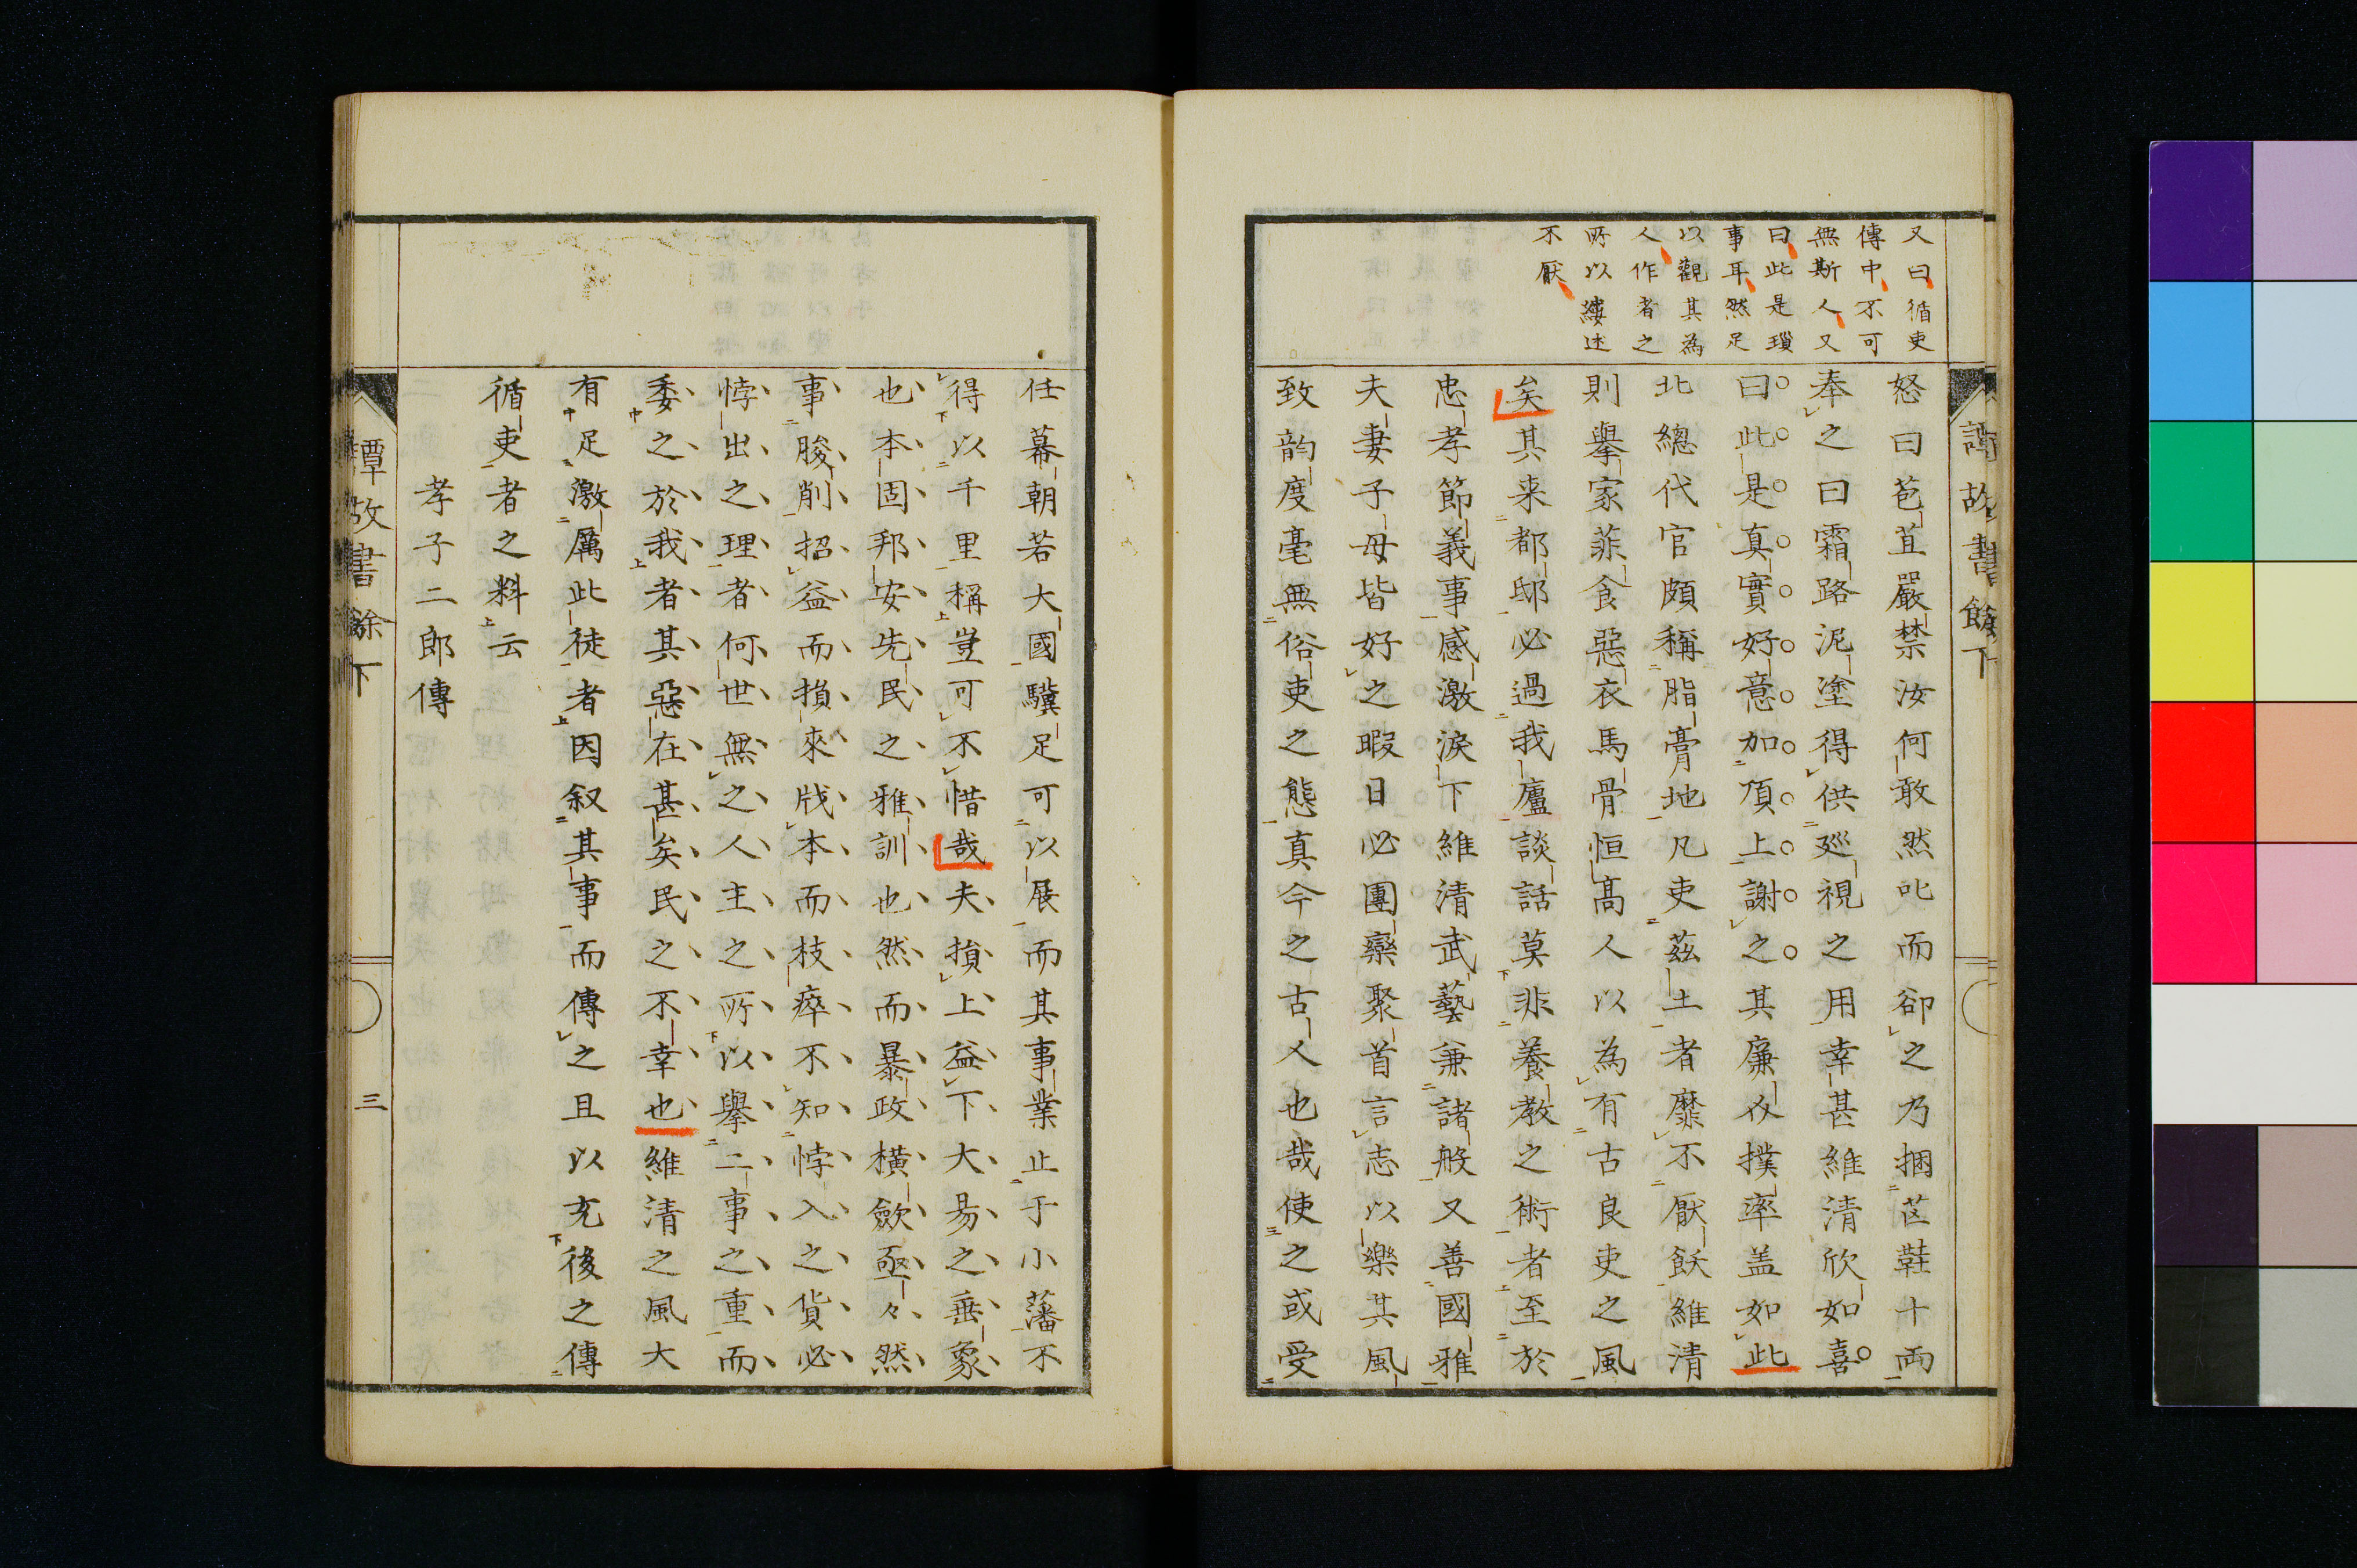 又曰循吏
傳中不可
無斯人又
曰此是瑣
事耳然足
以觀其為
人作者之
所以縷述
不厭
怒曰苞苴嚴禁汝何敢然叱而卻之乃捆芒鞋十両
奉之曰霜路泥塗得供廵視之用幸甚維清欣如喜
曰此是真實好意加頂上謝之其廉介撲率盖如此
北總代官頗稱脂膏地凡吏茲土者靡不厭飫維清
則擧家菲食惡衣馬骨恒高人以為有古良吏之風
矣其来都邸必過我廬談話莫非養教之術者至於
忠孝節義事感激淚下維清武藝兼諸般又善國雅
夫妻子母皆好之暇日必團欒聚首言志以樂其風
致韵度毫無俗吏之態真今之古人也哉使之或受
任幕朝若大國驥足可以展而其事業止于小藩不
得以千里稱豈可不惜哉夫損上益下大易之垂象
也本固邦安先民之雅訓也然而暴政横歛亟々然
事朘削招益而損來戕本而枝瘁不知悖入之貨必
悖出之理者何世無之人主之所以擧二事之重而
委之於我者其惡在甚矣民之不幸也維清之風大
有足激厲此徒者因叙其事而傳之且以充後之傳
循吏者之料云
孝子二郎傳
故書餘下
三